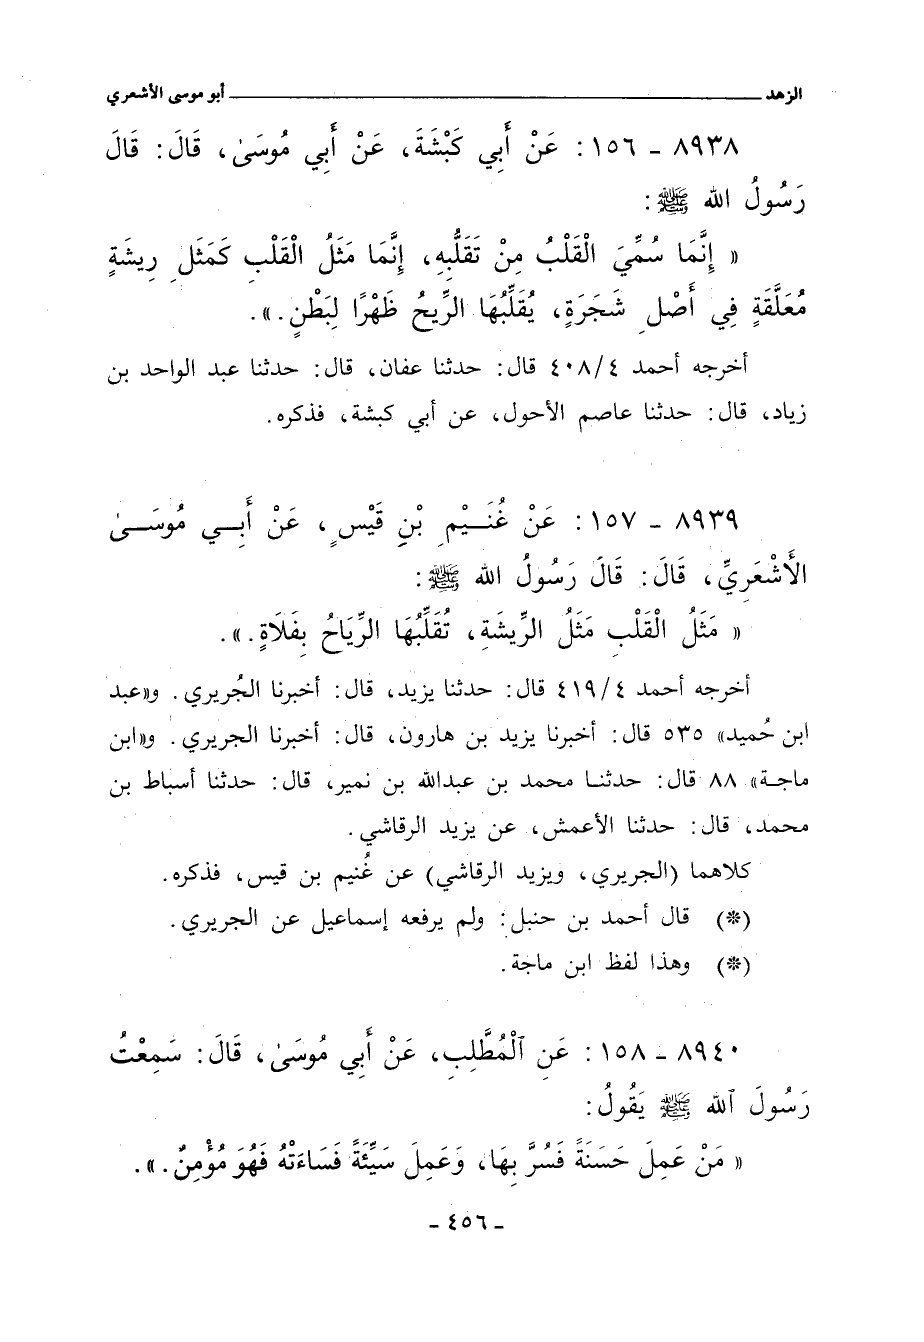 الزهد ــــــــــــــــــــــــــــــــــــــــــــــــــــــــــــــــ أبو موسى الأشعري
٨٩٣٨ - ١٥٦ : عَنْ أَبِي كَبْشَةَ، عَنْ أَبِي مُوسَىٰ، قَالَ: قَالَ
رَسُولُ الله ﷺ:
« إِنَّمَا سُمِّيَ الْقَلْبُ مِنْ تَقَلُّبِهِ، إِنَّمَا مَثَلُ الْقَلْبِ كَمَثَلِ رِيشَةٍ
مُعَلَّقَةٍ فِي أَصْلِ شَجَرَةٍ، يُقَلِّبُهَا الرِّيحُ ظَهْرًا لِبَطْنٍ. ».
أخرجه أحمد ٤٠٨/٤ قال: حدثنا عفان، قال: حدثنا عبد الواحد بن
زياد، قال: حدثنا عاصم الأحول، عن أبي كبشة، فذكره.
٨٩٣٩ - ١٥٧ : عَنْ غُنَيْمِ بْنِ قَيْسٍ، عَنْ أَبِي مُوسَىٰ
الأَشْعَرِيِّ، قَالَ: قَالَ رَسُولُ الله ﷺ:
« مَثَلُ الْقَلْبِ مَثَلُ الرِّيشَةِ، تُقَلِّبُهَا الرِّيَاحُ بِفَلَاةٍ. ».
أخرجه أحمد ٤١٩/٤ قال: حدثنا يزيد، قال: أخبرنا الجُريري. و«عبد
ابن حُميد» ٥٣٥ قال: أخبرنا يزيد بن هارون، قال: أخبرنا الجريري. و«ابن
ماجة» ٨٨ قال: حدثنا محمد بن عبدالله بن نمير، قال: حدثنا أسباط بن
محمد، قال: حدثنا الأعمش، عن يزيد الرقاشي.
كلاهما (الجريري، ويزيد الرقاشي) عن غُنيم بن قيس، فذكره.
(*) قال أحمد بن حنبل: ولم يرفعه إسماعيل عن الجريري.
(*) وهذا لفظ ابن ماجة.
٨٩٤٠ - ١٥٨ : عَنِ ٱلْمُطَّلِبِ، عَنْ أَبِي مُوسَىٰ، قَالَ: سَمِعْتُ
رَسُولَ ٱلله ﷺ يَقُولُ:
« مَنْ عَمِلَ حَسَنَةً فَسُرَّ بِهَا، وَعَمِلَ سَيِّئَةً فَسَاءَتْهُ فَهُوَ مُؤْمِنٌ. ».
- ٤٥٦ -